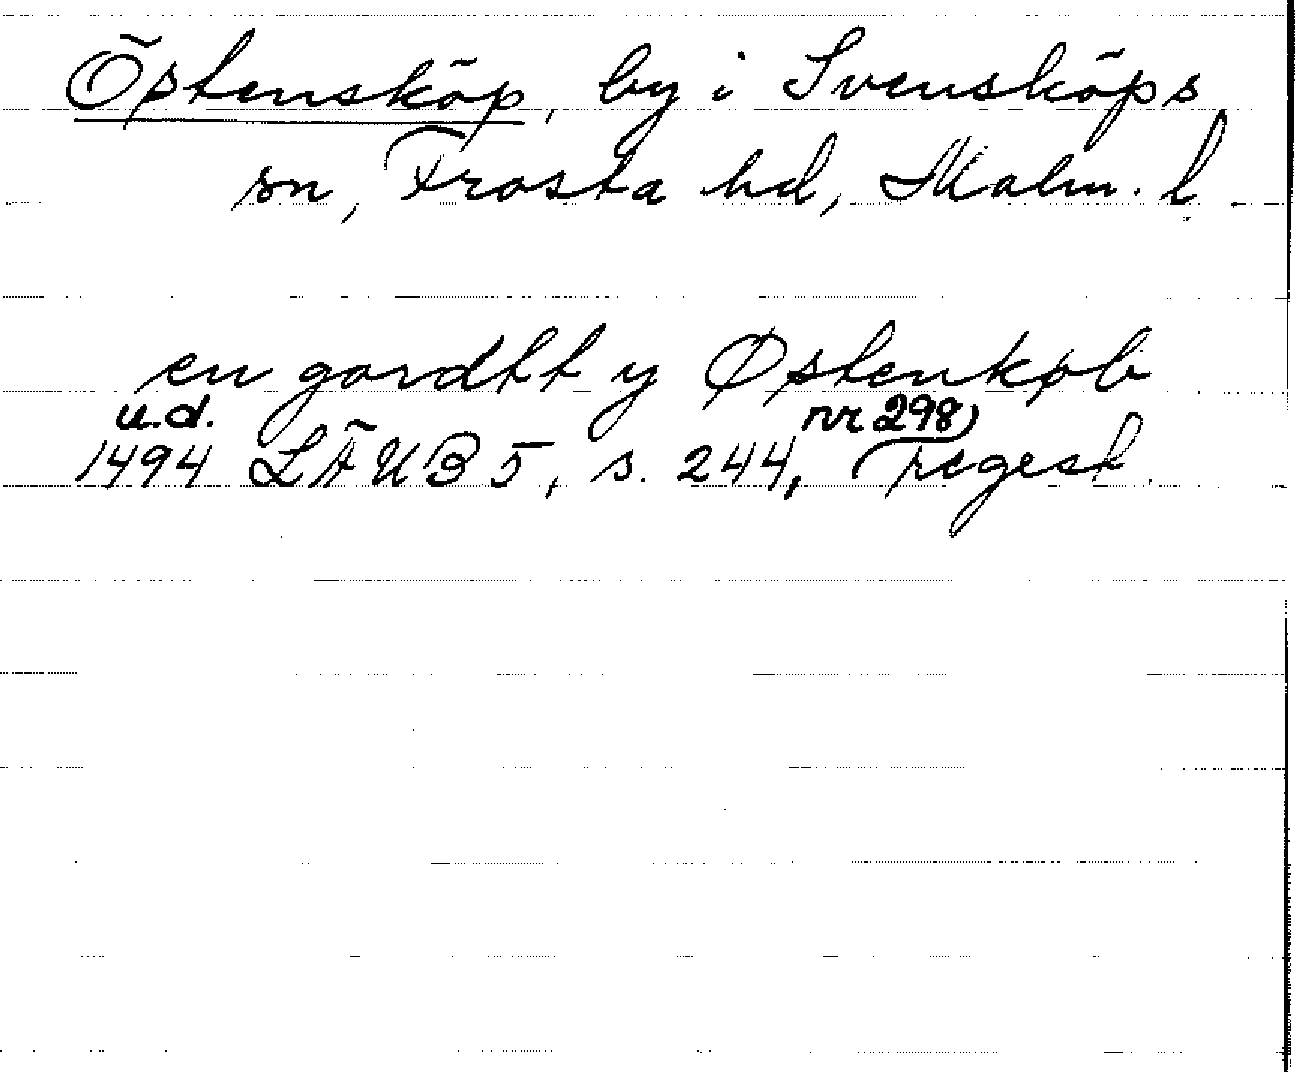 Östensköp, by i Svensköps
sn, Frosta hd, Malm. l.
en gordtt y Østenkøb
u.d. nr 298,
1494 LÄUB 5, s. 244, regest.